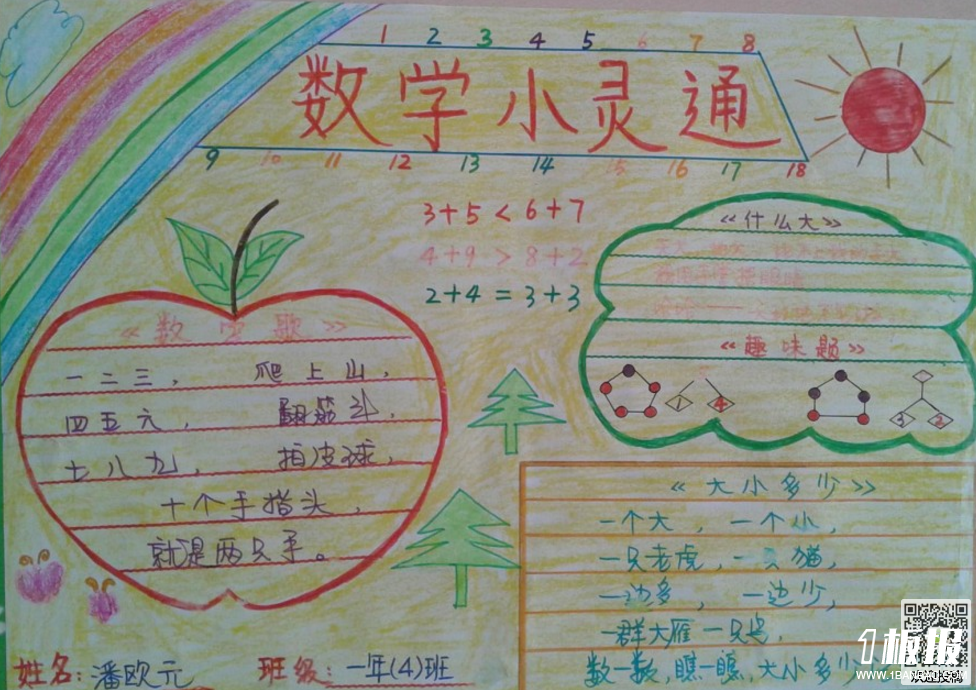 1 2 3 4 5 6 7 8
数学小灵通
9 10 11 12 13 14 15 16 17 18
3+5<6+7
4+9>8+2
2+4=3+3
《数字歌》
一二三， 爬上山，
四五六， 翻筋斗，
七八九， 拍皮球，
十个手指头，
就是两只手。
《什么大》
《趣味题》
1 4 3 2
《大小多少》
一个大，一个小，
一只老虎，一只猫，
一边多，一边少，
一群大雁一只鸟，
数一数，瞧一瞧，大小多少
姓名：潘欧元 班级：一年(4)班
1板报
WWW.1BANBAO.COM
欢迎投稿